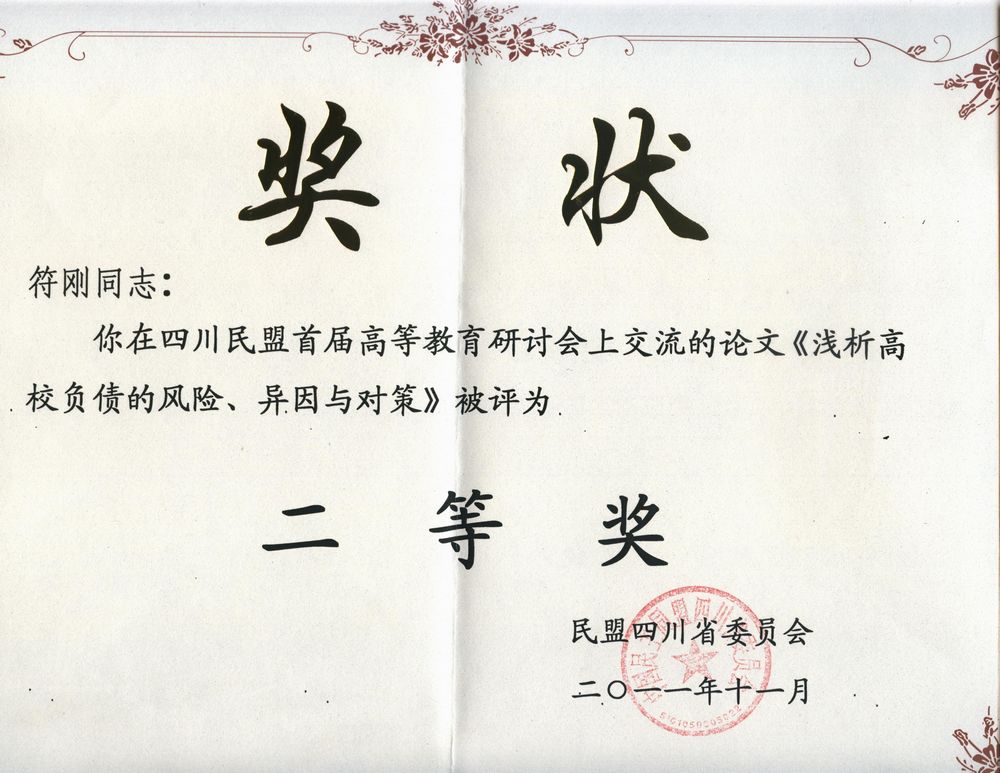 奖状
符刚同志：
你在四川民盟首届高等教育研讨会上交流的论文《浅析高
校负债的风险、异因与对策》被评为
二等奖
民盟四川省委员会
二〇一一年十一月